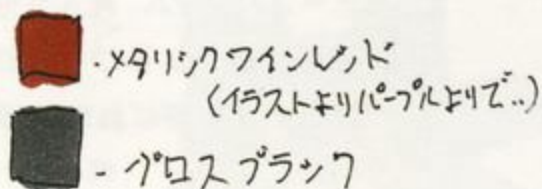 ・メタリックワインレッド
(イラストよりパープルよりで‥)
- グロスブラック